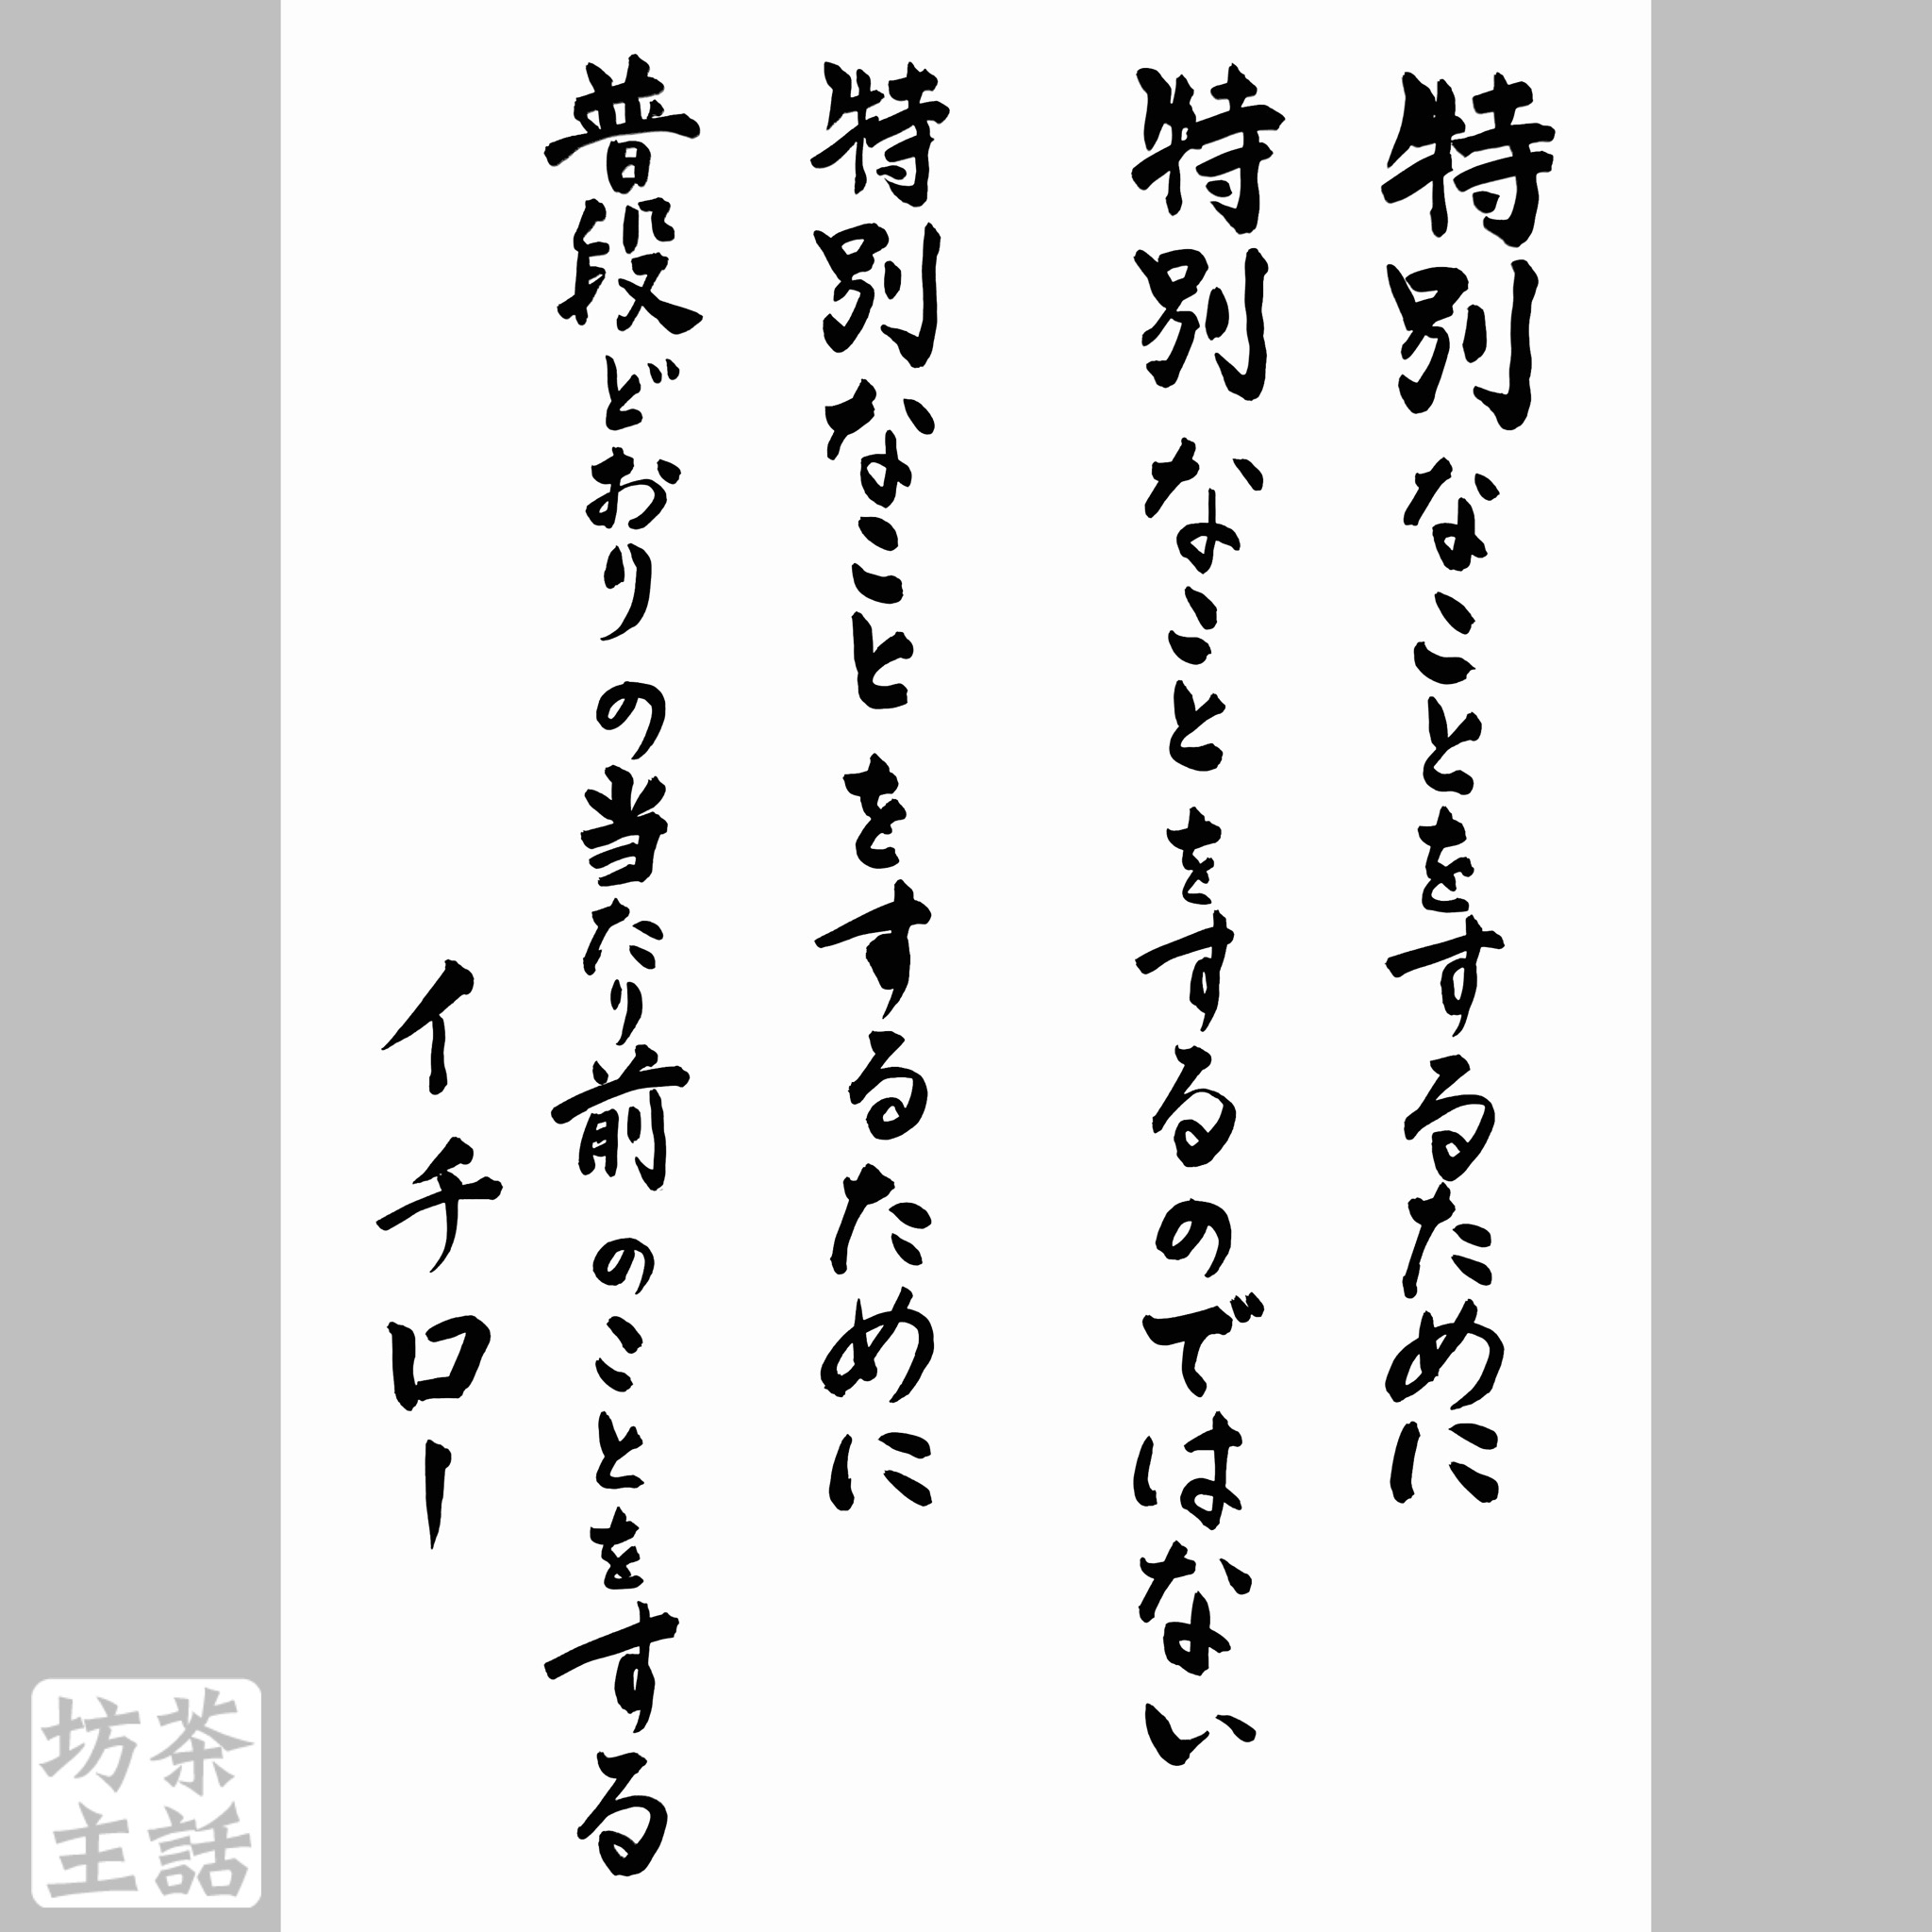 特別なことをするために
特別なことをするのではない
特別なことをするために
普段どおりの当たり前のことをする
イチロー
茶話
坊主